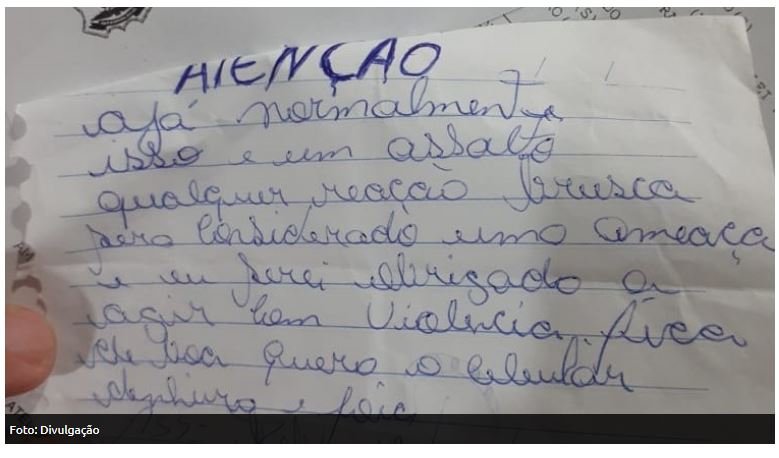 ATENÇÃO
ajá normalmente
isso e um assalto
qualquer reação brusca
sera considerado uma ameaça
e eu serei obrigado a
agir com violencia, fica
de boa quero o celular
e
Foto: Divulgação